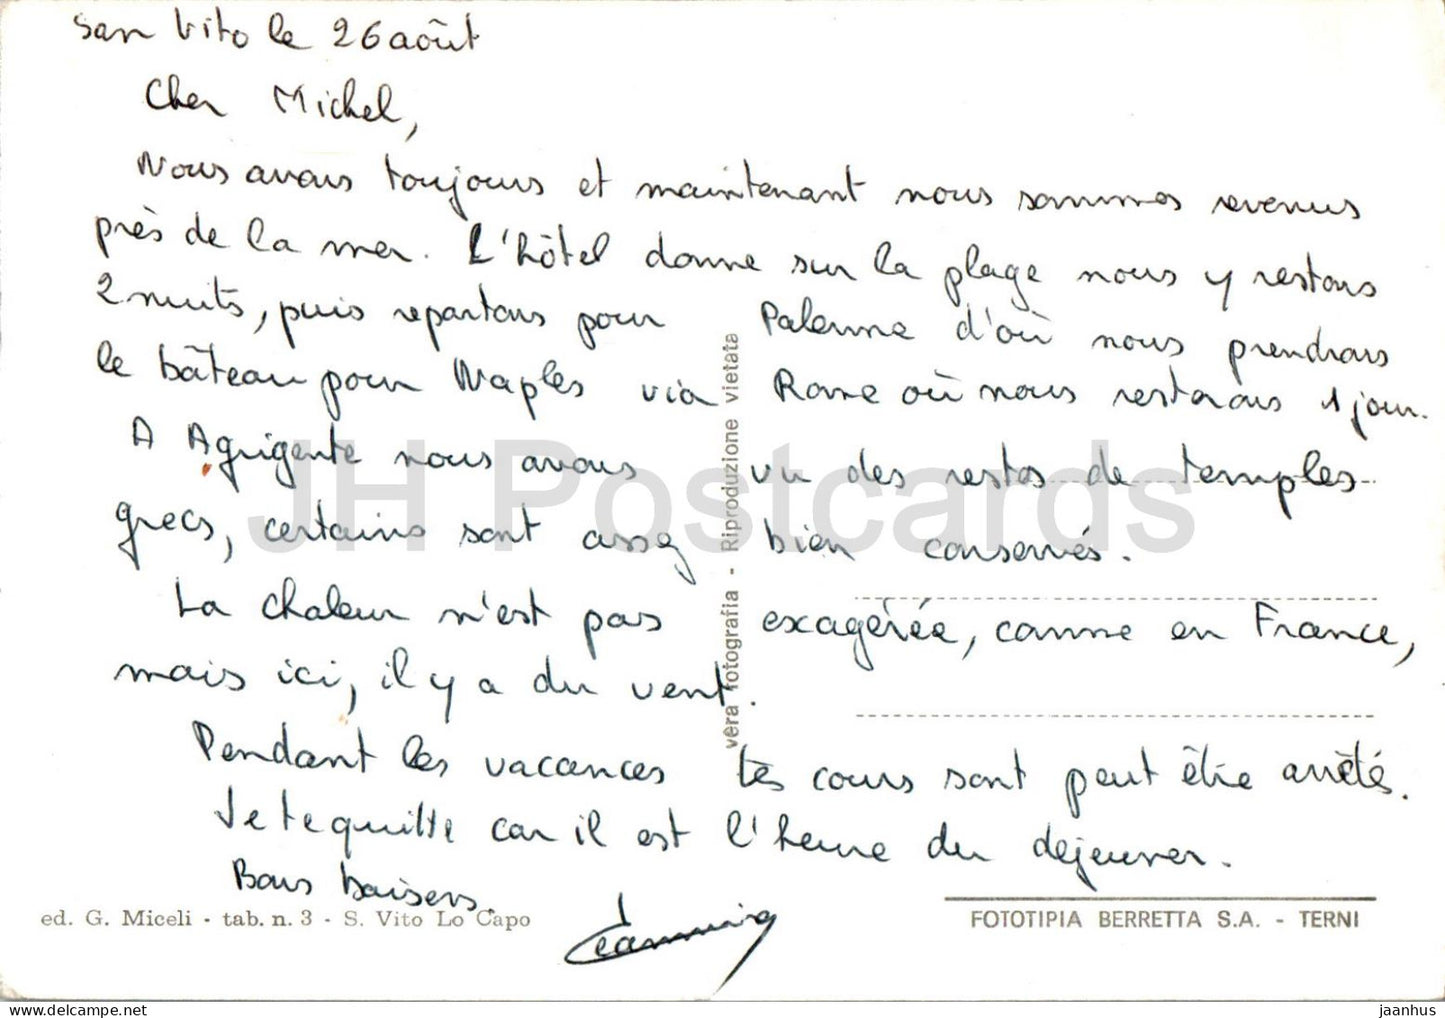 San Vito le 26 août
Cher Michel,
Nous avons toujours et maintenant nous sommes revenus
près de la mer. L'hôtel donne sur la plage nous y restons
2 nuits, puis repartons pour Palerme d'où nous prendrons
le bâteau pour Naples via Rome où nous resterons 1 jour.
A Agrigente nous avons vu des restes de temples
grecs, certains sont assez bien conservés.
La chaleur n'est pas exagérée, comme en France,
mais ici, il y a du vent.
Pendant les vacances tes cours sont peut être arrêtés.
Je te quitte car il est l'heure du déjeuner.
Bons baisers.
vera fotografia - Riproduzione vietata
ed. G. Miceli - tab. n. 3 - S. Vito Lo Capo
FOTOTIPIA BERRETTA S.A. - TERNI
JH Postcards
jaanhus